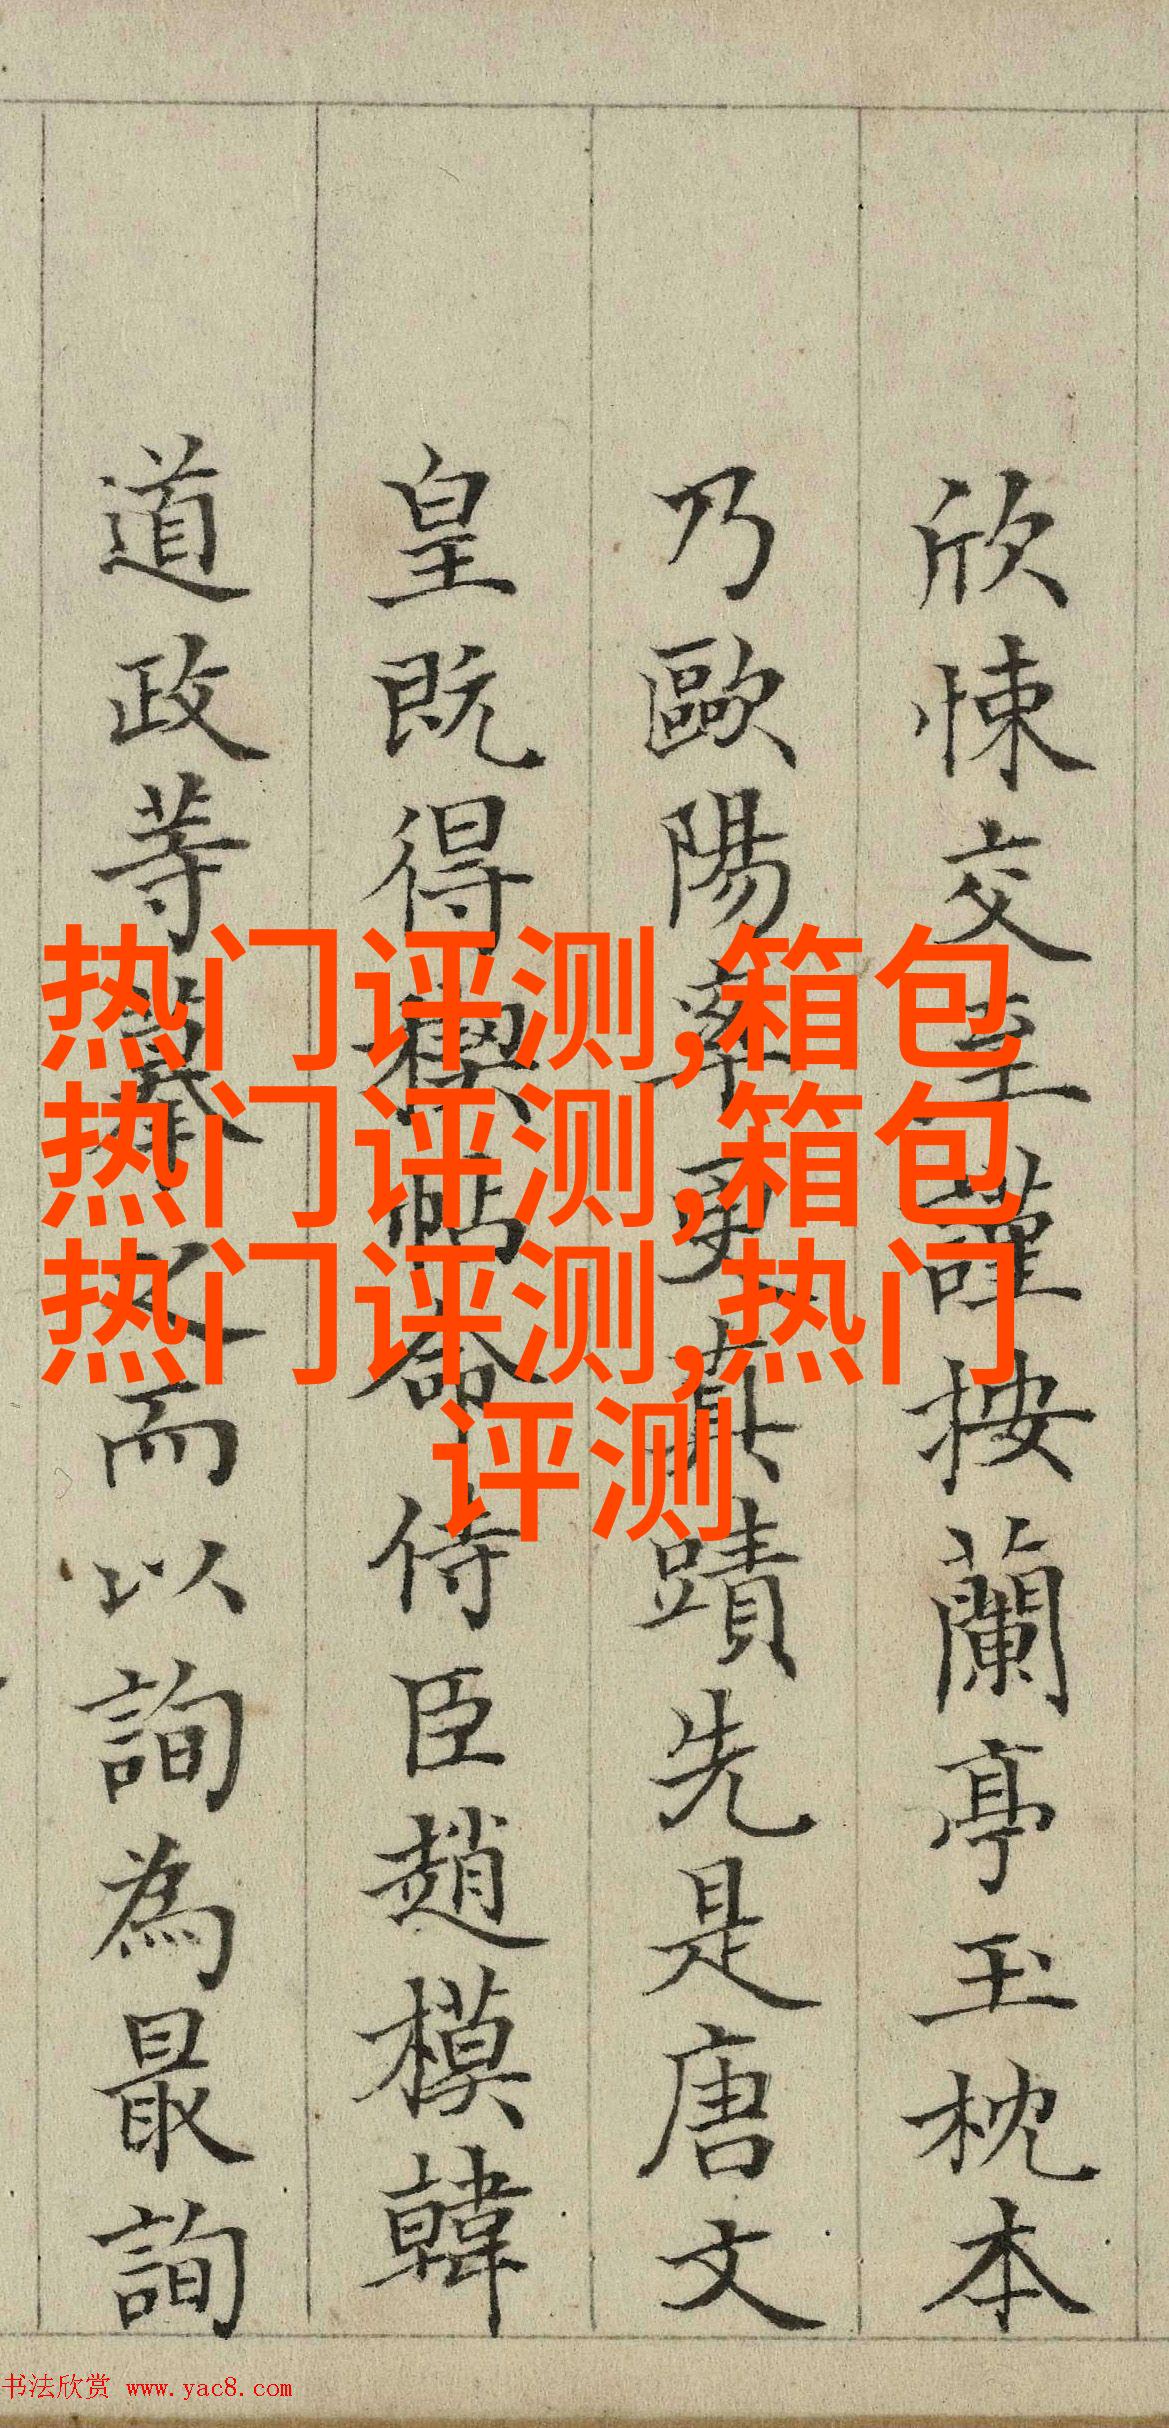 欣悚交至謹按蘭亭玉枕本
乃歐陽率更真蹟先是唐文
皇既得禊帖命侍臣趙模韓
道政等摹之而以詢為最詢
热门评测,箱包
热门评测,箱包
热门评测,热门
评测
书法欣赏 www.yac8.com